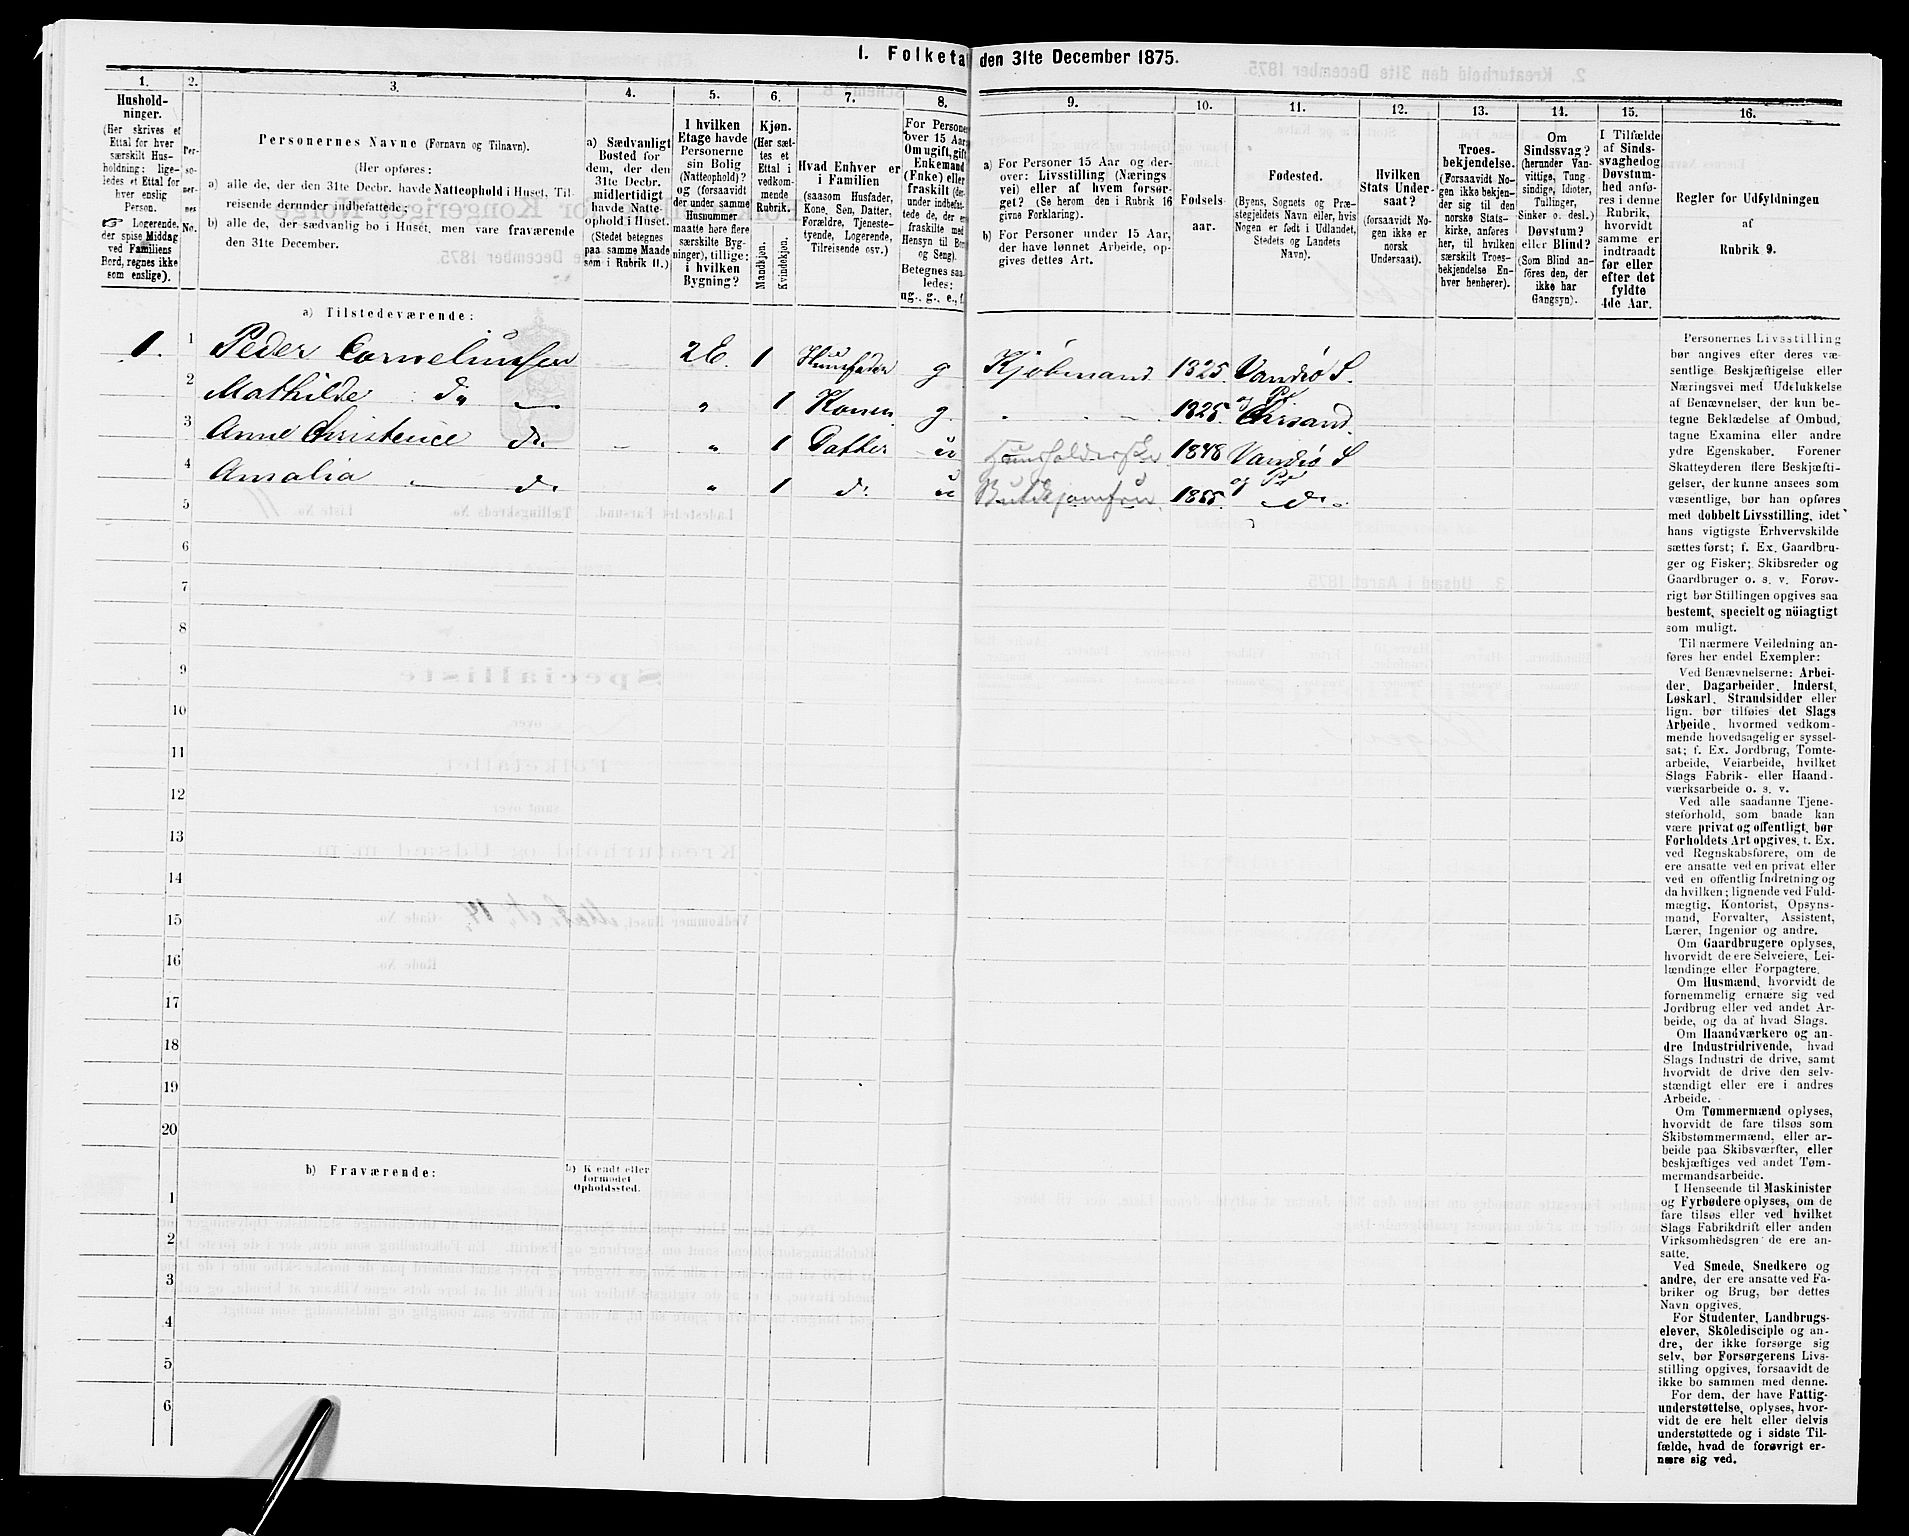 I. Folketa den 31te December 1875.
1. 2. 3. 4. 5. 6. 7. 8. 9. 10. 11. 12. 13. 14. 15. 16.
Hushold-
ninger.
(Her skrives et
Ettal for hver
særskilt Hus-
holdning; lige-
ledes et Ettal for
hver enslig
Person.
☞ Logerende,
der spise Middag
ved Familiens
Bord, regnes ikke
som enslige).
Per-
so-
ner-
nes
No.
Personernes Navne (Fornavn og Tilnavn).
(Her opføres:
a) alle de, der den 31te Decbr. havde Natteophold i Huset, Til-
reisende derunder indbefattede;
b) alle de, der sædvanlig bo i Huset, men vare fraværende
den 31te December.
a) Sædvanligt
Bosted for
dem, der den
31te Decbr.
midlertidigt
havde Natte-
ophold i Huset.
(Stedet betegnes
paa samme Maade
som i Rubrik 11.)
I hvilken
Etage havde
Personerne
sin Bolig
(Natteophold)?
og (forsaavidt
der under samme
Husnummer
maatte høre flere
særskilte Byg-
ninger), tillige:
i hvilken
Bygning?
Kjøn.
(Her sæt-
tes et
Ettal i
vedkom-
mende
Rubrik.
Mandkjøn.
Kvindekjøn.
Hvad Enhver er
i Familien
(saasom Husfader,
Kone, Søn, Datter,
Forældre, Tjeneste-
tyende, Logerende,
Tilreisende osv.)
For Persone
over 15 Aar:
Om ugift, gift
Enkemand
(Enke) eller
fraskilt (der-
under indbefat-
tede de, der er
fraskilte med
Hensyn til Bor
og Seng).
Betegnes saa-
ledes:
ug., g., e., f.
a) For Personer 15 Aar og der-
over: Livsstilling (Nærings
vei) eller af hvem forsør-
get? (Se herom den i Rubrik 16
givne Forklaring).
b) For Personer under 15 Aar,
der have lønnet Arbeide, op-
gives dettes Art.
Fødsels-
aar.
Fødested.
(Byens, Sognets og Præ-
stegjeldets Navn eller, hvis
Nogen er født i Udlandet,
Stedets og Landets
Navn).
Hvilken
Stats Under-
saat?
(forsaavidt No-
gen ikke er
norsk
Undersaat).
Troes-
bekjendelse.
(Forsaavidt No-
gen ikke bekjen-
der sig til den
norske Stats-
kirke, anføres
her, til hvilken
særskilt Troes-
bekjendelse En-
hver henhører).
Om
Sindssvag?
(herunder Van-
vittige, Tung
sindige, Idioter,
Tullinger,
Sinker o. desl.)
Døvstum?
eller Blind?
(Som Blind an-
føres den, der
ikke har
Gangsyn).
I Tilfælde
af Sinds-
svaghedog
Døvstum-
hed anfø-
res i denne
Rubrik,
hvorvidt
samme er
indtraadt
før eller
efter det
fyldte
4de Aar.
Regler for Udfyldningen
af
Rubrik 9.
a) Tilstedeværende:
1. 1 Peder Corneliussen 2E. 1 Huusfader g Kjøbmand 1825. Vandsö S. og Pr
2 Mathilde do — „ 1 Konen g. 1825. Chrsand.
3 Anne Christence do. „ 1 Datter u Huusholderske 1848 Vandsö S og Pr
4 Amalia do „ 1 do u Butikjomfru 1855. do
5
6
7
8
9
10
11
12
13
14
15
16
17
18
19
20
b) Fraværende:
b) Kjendt eller
formodet
Opholdssted.
1
2
3
4
5
6
Personernes Livsstilling
bør angives efter deres væ-
sentlige Beskjæftigelse eller
Næringsvei med Udelukkelse
af Benævnelser, der kun be-
tegne Beklædelse af Ombud,
tagne Examina eller andre
ydre Egenskaber. Forener
Skatteyderen flere Beskjæfti-
gelser, der kunne ansees som
væsentlige, bør han opføres
med dobbelt Livsstilling, idet
hans vigtigste Erhvervskilde
sættes først; f. Ex. Gaardbru-
ger og Fisker; Skibsreder og
Gaardbruger o. s. v. Forøv-
rigt bør Stillingen opgives saa
bestemt, specielt og nöiagtigt
som muligt.
Til nærmere Veiledning an-
føres her endel Exempler:
Ved Benævnelserne: Arbei-
der, Dagarbeider, Inderst,
Løskarl, Strandsidder eller
lign. bør tilføies det Slags
Arbeide, hvormed vedkom-
mende hovedsagelig er syssel-
sat; f. Ex. Jordbrug, Tomte-
arbeide, Veiarbeide, hvilket
Slags Fabrik- eller Haand-
værksarbeide o. s. v.
Ved alle saadanne Tjene-
steforhold, som baade kan
være privat og offentligt, bør
Forholdets Art opgives, t. Ex.
ved Regnskabsførere, om de
ere ansatte ved en privat eller
ved en offentlig Indretning og
da hvilken; lignende ved Fuld-
mægtig, Kontorist, Opsyns-
mand, Forvalter, Assistent,
Lærer, Ingeniør og andre.
Om Gaardbrugere oplyses,
hvorvidt de ere Selveiere, Lei-
lændinge eller Forpagtere.
Om Husmænd, hvorvidt de
fornemmelig ernære sig ved
Jordbrug eller ved andet Ar-
beide, og da af hvad Slags.
Om Haandværkere og an-
dre Industridrivende, hvad
Slags Industri de drive, samt
hvorvidt de drive den selv-
stændigt eller ere i andres
Arbeide.
Om Tømmermænd oplyses,
hvorvidt de fare tilsøs som
Skibstømmermænd, eller ar-
beide paa Skibsværfter, eller
beskjæftiges ved andet Tøm-
mermandsarbeide.
I Henseende til Maskinister
og Fyrbødere oplyses, om de
fare tilsøs eller ved hvilket
Slags Fabrikdrift eller anden
Virksomhedsgren de ere an-
satte.
Ved Smede, Snedkere og
andre, der ere ansatte ved Fa-
briker og Brug, bør dettes
Navn opgives.
For Studenter, Landbrugs-
elever, Skoledisciple og an-
dre, der ikke forsørge sig
selv, bør Forsørgerens Livs-
stilling opgives, forsaavidt de
ikke bo sammen med denne.
For dem, der have Fattig-
understøttelse, oplyses, hvor-
vidt de ere helt eller delvis
understøttede og i sidste Til-
fælde, hvad de forøvrigt er-
nære sig ved.